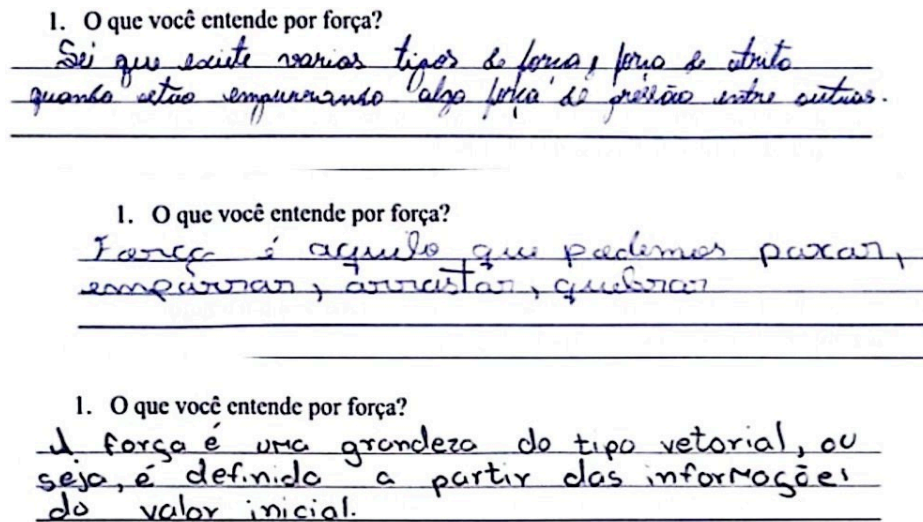 1. O que você entende por força?
Sei que existe varias tipos de força, força de atrito
quando estão empurrando algo força de pressão entre outras.
1. O que você entende por força?
Força é aquilo que podemos paxar,
empurrar, arrastar, quebrar
1. O que você entende por força?
A força é uma grandeza do tipo vetorial, ou
seja, é definida a partir das informações
do valor inicial.